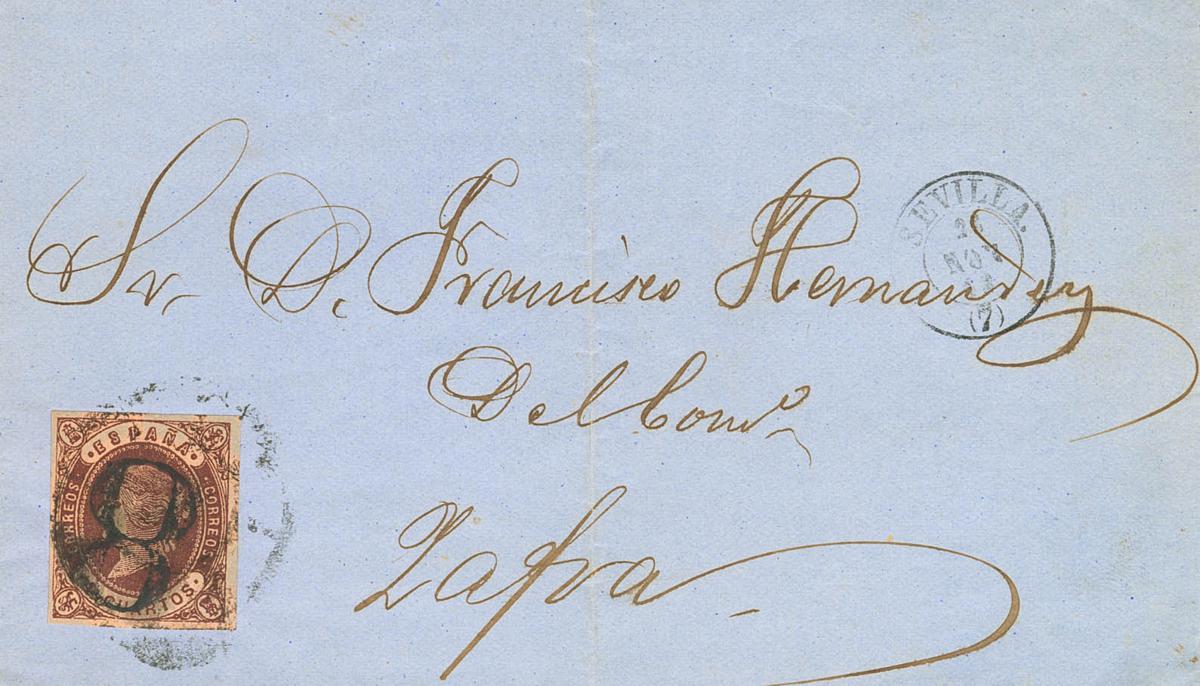 Sr. D. Francisco Hernandez
Del Com.º
Zafra
SEVILLA.
NOV
(7)
ESPAÑA
CORREOS
CORREOS
CUARTOS